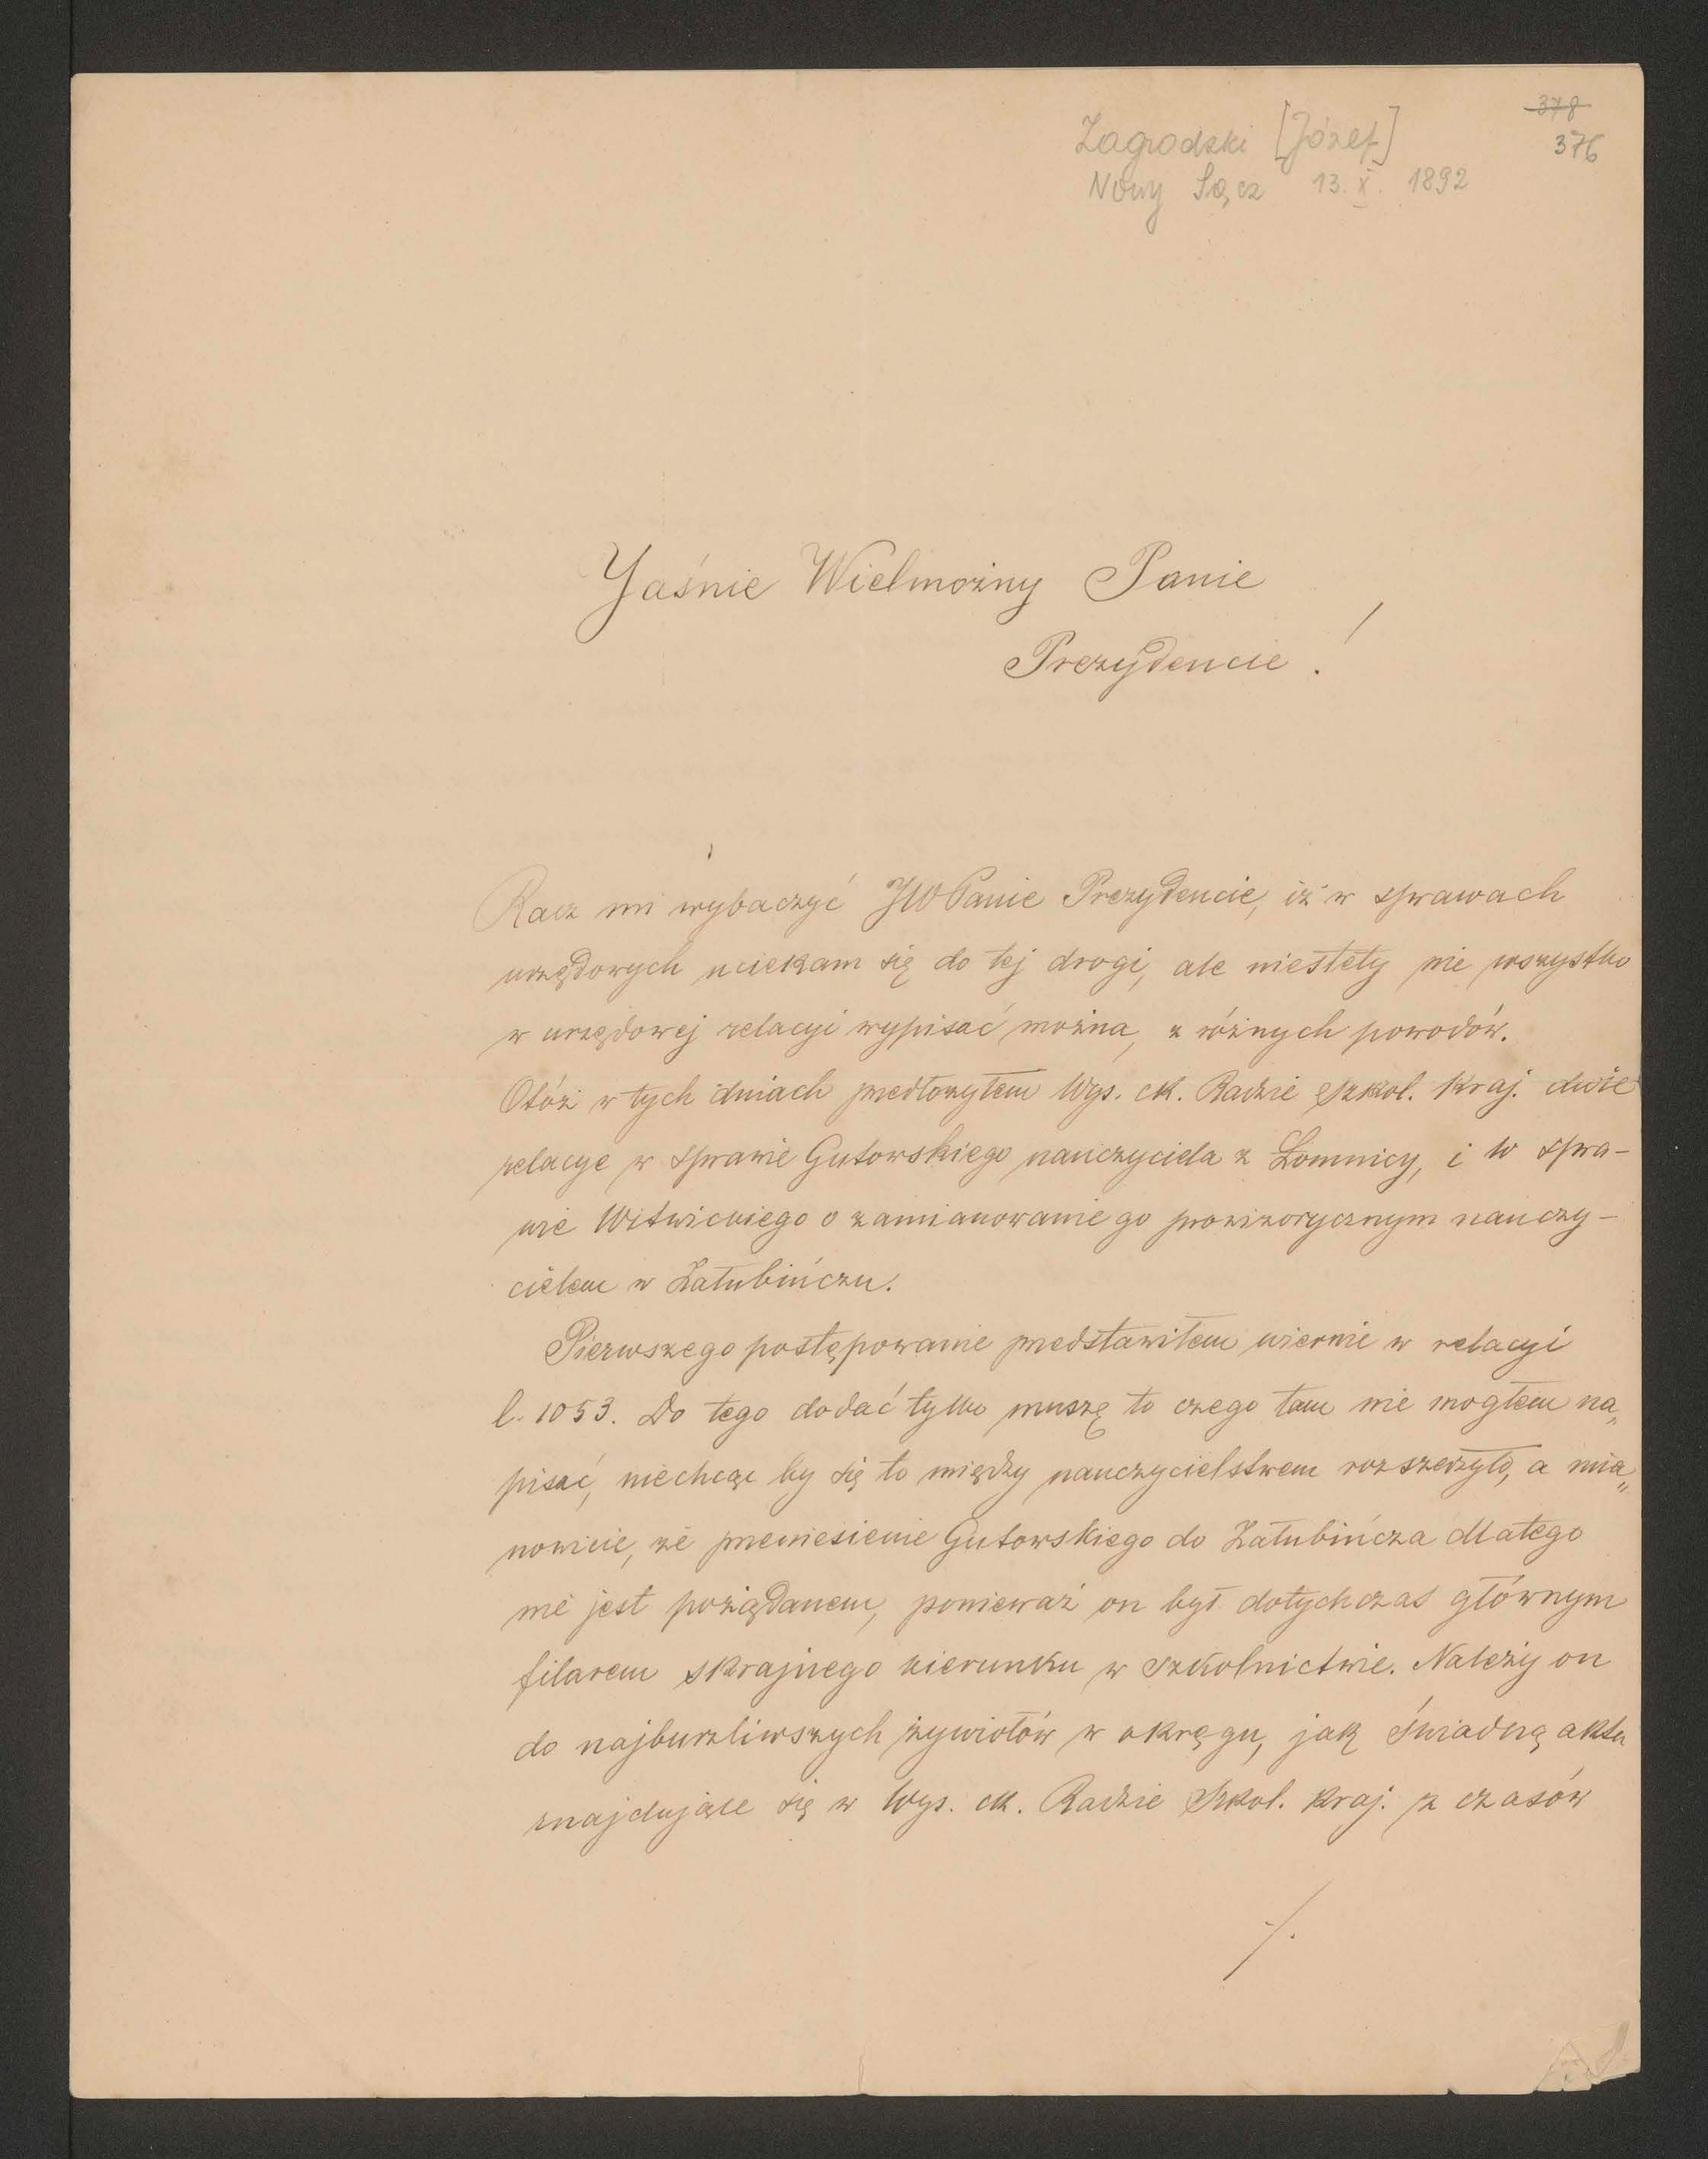 378
Zagrodzki [Józef] 376
Nowy Sącz 13. X. 1892
Jaśnie Wielmożny Panie
Prezydencie!
Racz mi wybaczyć JWPanie Prezydencie, iż w sprawach
urzędowych uciekam się do tej drogi, ale niestety nie wszystko
w urzędowej relacyi wypisać można, z różnych powodów.
Otóż w tych dniach przedłożyłem Wys. ck. Radzie Szkol. Kraj. dwie
relacye w sprawie Gutowskiego nauczyciela z Łomnicy, i w spra-
wie Witwickiego o zamianowanie go prowizorycznym nauczy-
cielem w Załubińczu.
Pierwszego postępowanie przedstawiłem wiernie w relacyi
l. 1053. Do tego dodać tylko muszę to czego tam nie mogłem na„
pisać, niechcąc by się to między nauczycielstwem rozszerzyło, a mia„
nowicie, że przeniesienie Gutowskiego do Załubińcza dlatego
nie jest pożądanem, ponieważ on był dotychczas głównym
filarem skrajnego kierunku w szkolnictwie. Należy on
do najburzliwszych żywiołów w okręgu, jak świadczą akta
znajdujące się w Wys. ck. Radzie Szkol. Kraj. z czasów
./.